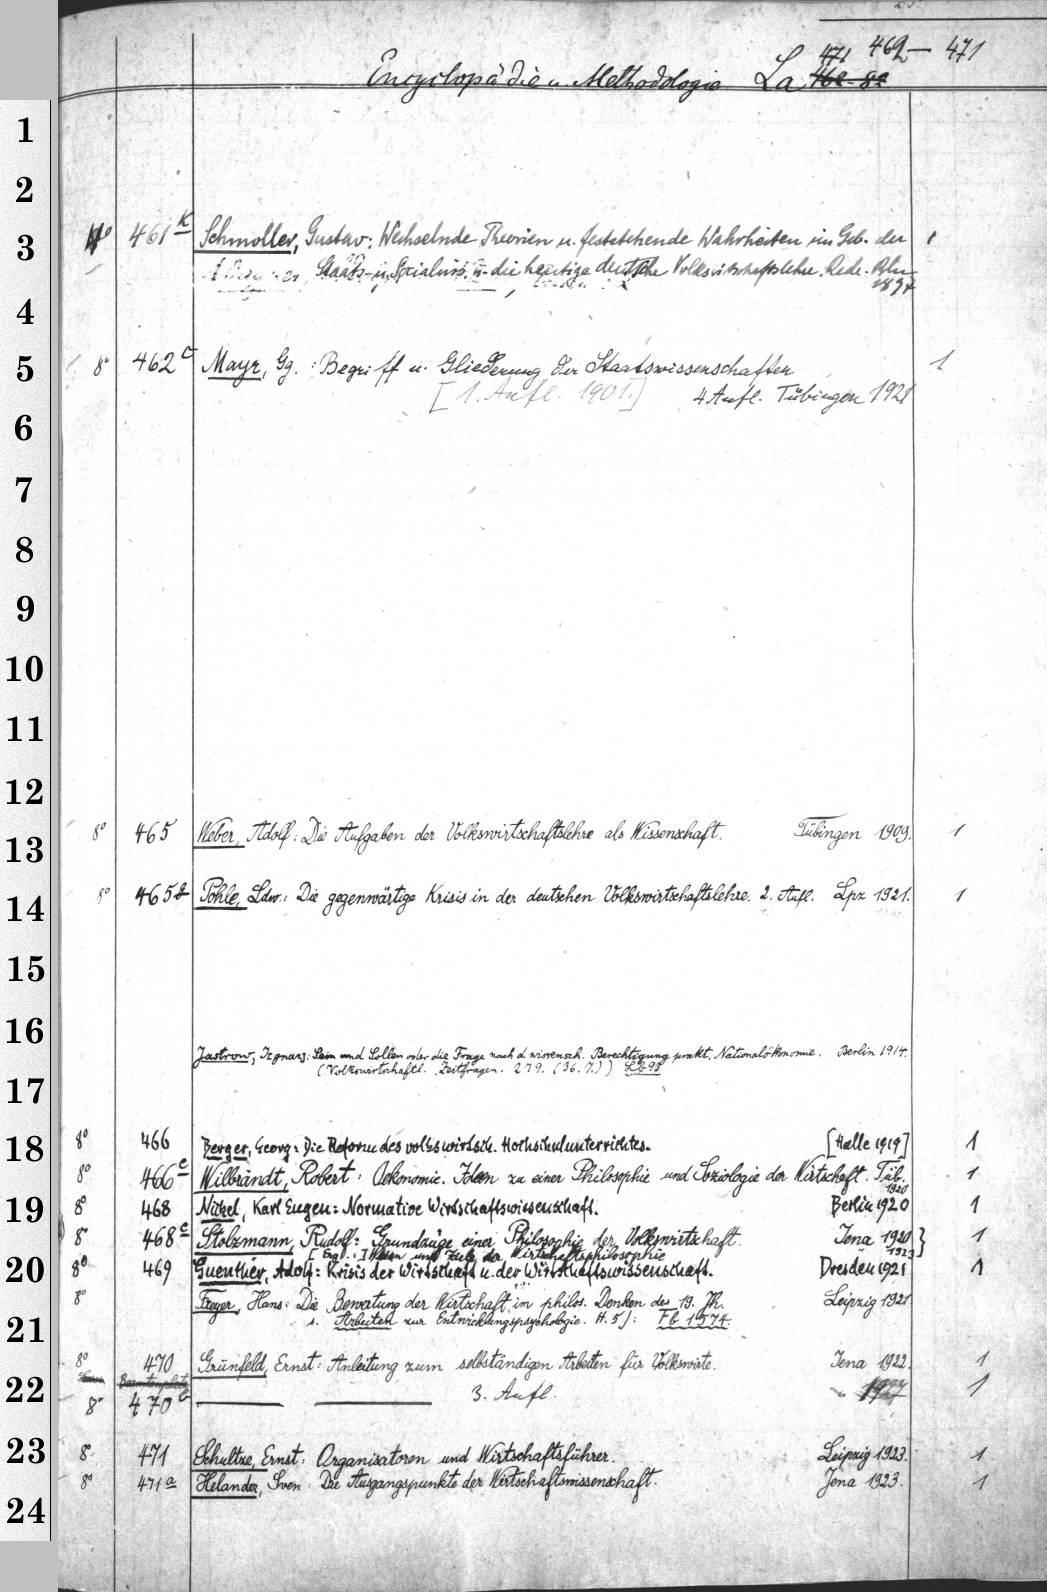 Encyclopädie u. Methodologie La 471 462-82 462 — 471
1
2
3
4o 461 K Schmoller, Gustav: Wechselnde Theorien u. feststehende Wahrheiten im Geb. der 1
Staats- u. Sozialwiss. u. die heutige deutsche Volkswirtschaftslehre. Rede. Bln
1897
4
5
8o 462 c Mayr, Gg.: Begriff u. Gliederung der Staatswissenschaften 1
[1. Aufl. 1901.] 4. Aufl. Tübingen 1921
6
7
8
9
10
11
12
13
8o 465 Weber, Adolf: Die Aufgaben der Volkswirtschaftslehre als Wissenschaft. Tübingen 1909. 1
14
8o 465 g Pohle, Ldw.: Die gegenwärtige Krisis in der deutschen Volkswirtschaftslehre. 2. Aufl. Lpz 1921. 1
15
16
Jastrow, Ignaz: Sein und Sollen oder die Frage nach d. wissensch. Berechtigung prakt. Nationalökonomie. Berlin 1914.
(Volkswirtschaftl. Zeitfragen. 279. (36.7.)) Lb98
17
18
8o 466 Berger, Georg: Die Reform des volkswirtsch. Hochschulunterrichtes. [Halle 1919] 1
8o 466 c Wilbrandt, Robert: Oekonomie. Ideen zu einer Philosophie und Soziologie der Wirtschaft. Tüb. 1
1920
19
8o 468 Nickel, Karl Eugen: Normative Wirtschaftswissenschaft. Berlin 1920 1
8o 468 c Stolzmann, Rudolf: Grundzüge einer Philosophie der Volkswirtschaft. Jena 1920 } 1
[Erg.: Wesen und Ziele der Wirtschaftsphilosophie 1923
20
8o 469 Guenther, Adolf: Krisis der Wirtschaft u. der Wirtschaftswissenschaft. Dresden 1921 1
8o Freyer, Hans: Die Bewertung der Wirtschaft im philos. Denken des 19. Jh. Leipzig 1921
s. Arbeiten zur Entwicklungspsychologie. H. 5]: Fb 1574
21
8o 470 Grünfeld, Ernst: Anleitung zum selbständigen Arbeiten für Volkswirte. Jena 1922. 1
22
8o 470 b 3. Aufl. 1
23
8o 471 Schultze, Ernst: Organisatoren und Wirtschaftsführer. Leipzig 1923. 1
8o 471 a Helander, Sven: Die Ausgangspunkte der Wirtschaftswissenschaft. Jena 1923. 1
24